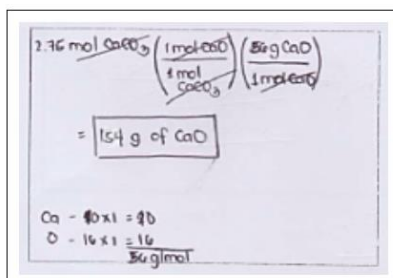 2.76 mol CaCO₃ (1 mol CaO / 1 mol CaCO₃) (56 g CaO / 1 mol CaO)
= 154 g of CaO
Ca - 40 x 1 = 40
O - 16 x 1 = 16
56 g/mol